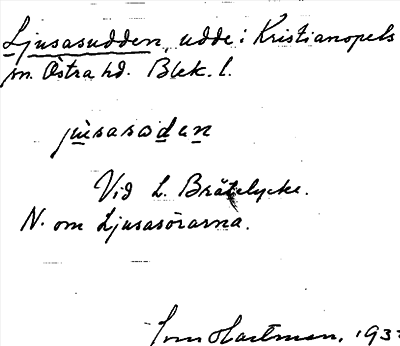 Ljusasudden, udde i Kristianopels
sn. Östra hd. Blek. l.
jùsasωdεn
Vid L. Brätelycke.
N. om Ljusasörarna.
Hartman, 193